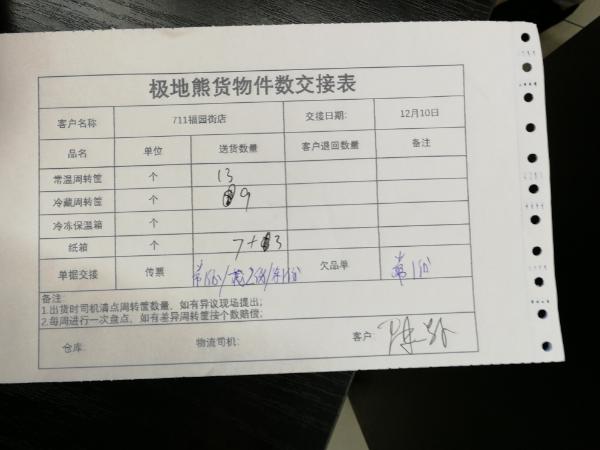 极地熊货物件数交接表
客户名称 711福园街店 交接日期: 12月10日
品名 单位 送货数量 客户退回数量 备注
常温周转筐 个 13
冷藏周转筐 个 9
冷冻保温箱 个
纸箱 个 7+3
单据交接 传票 欠品单
备注:
1.出货时司机清点周转筐数量，如有异议现场提出;
2.每周进行一次盘点，如有差异周转筐按个数赔偿;
仓库: 物流司机: 客户: